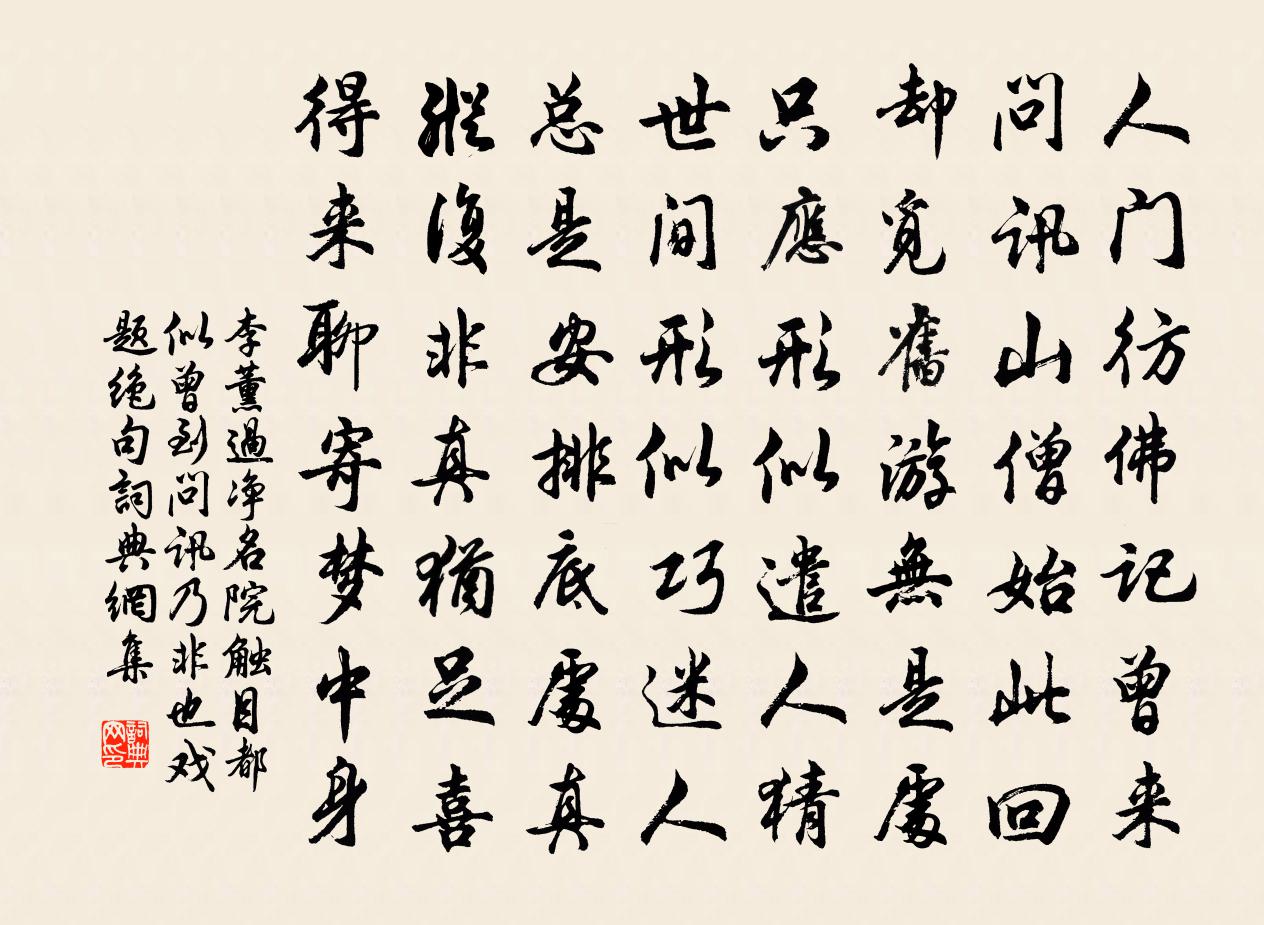 人门彷佛记曾来
问讯山僧始此回
却觅舊游無是處
只應形似遣人猜
世间形似巧迷人
总是安排底處真
縱復非真猶足喜
得来聊寄梦中身
李薰過净名院触目都
似曾到问讯乃非也戏
题绝句詞典網集
詞典网印